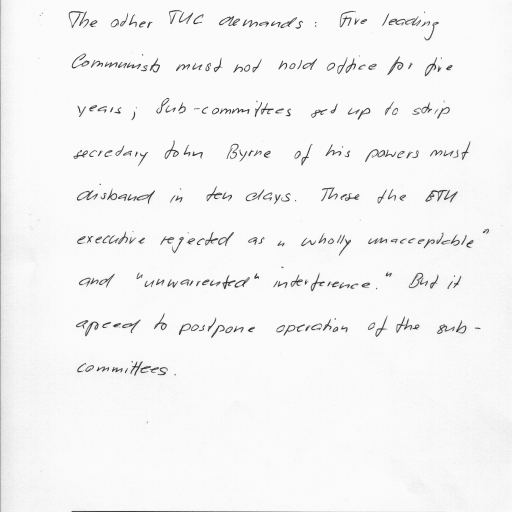 The other TUC demands: Five leading
Communists must not hold office for five
years; Sub-committees set up to strip
secretary John Byrne of his powers must
disband in ten days. These the ETU
executive rejected as "wholly unacceptable"
and "unwarrented" interference." But it
agreed to postpone operation of the sub-
committees.